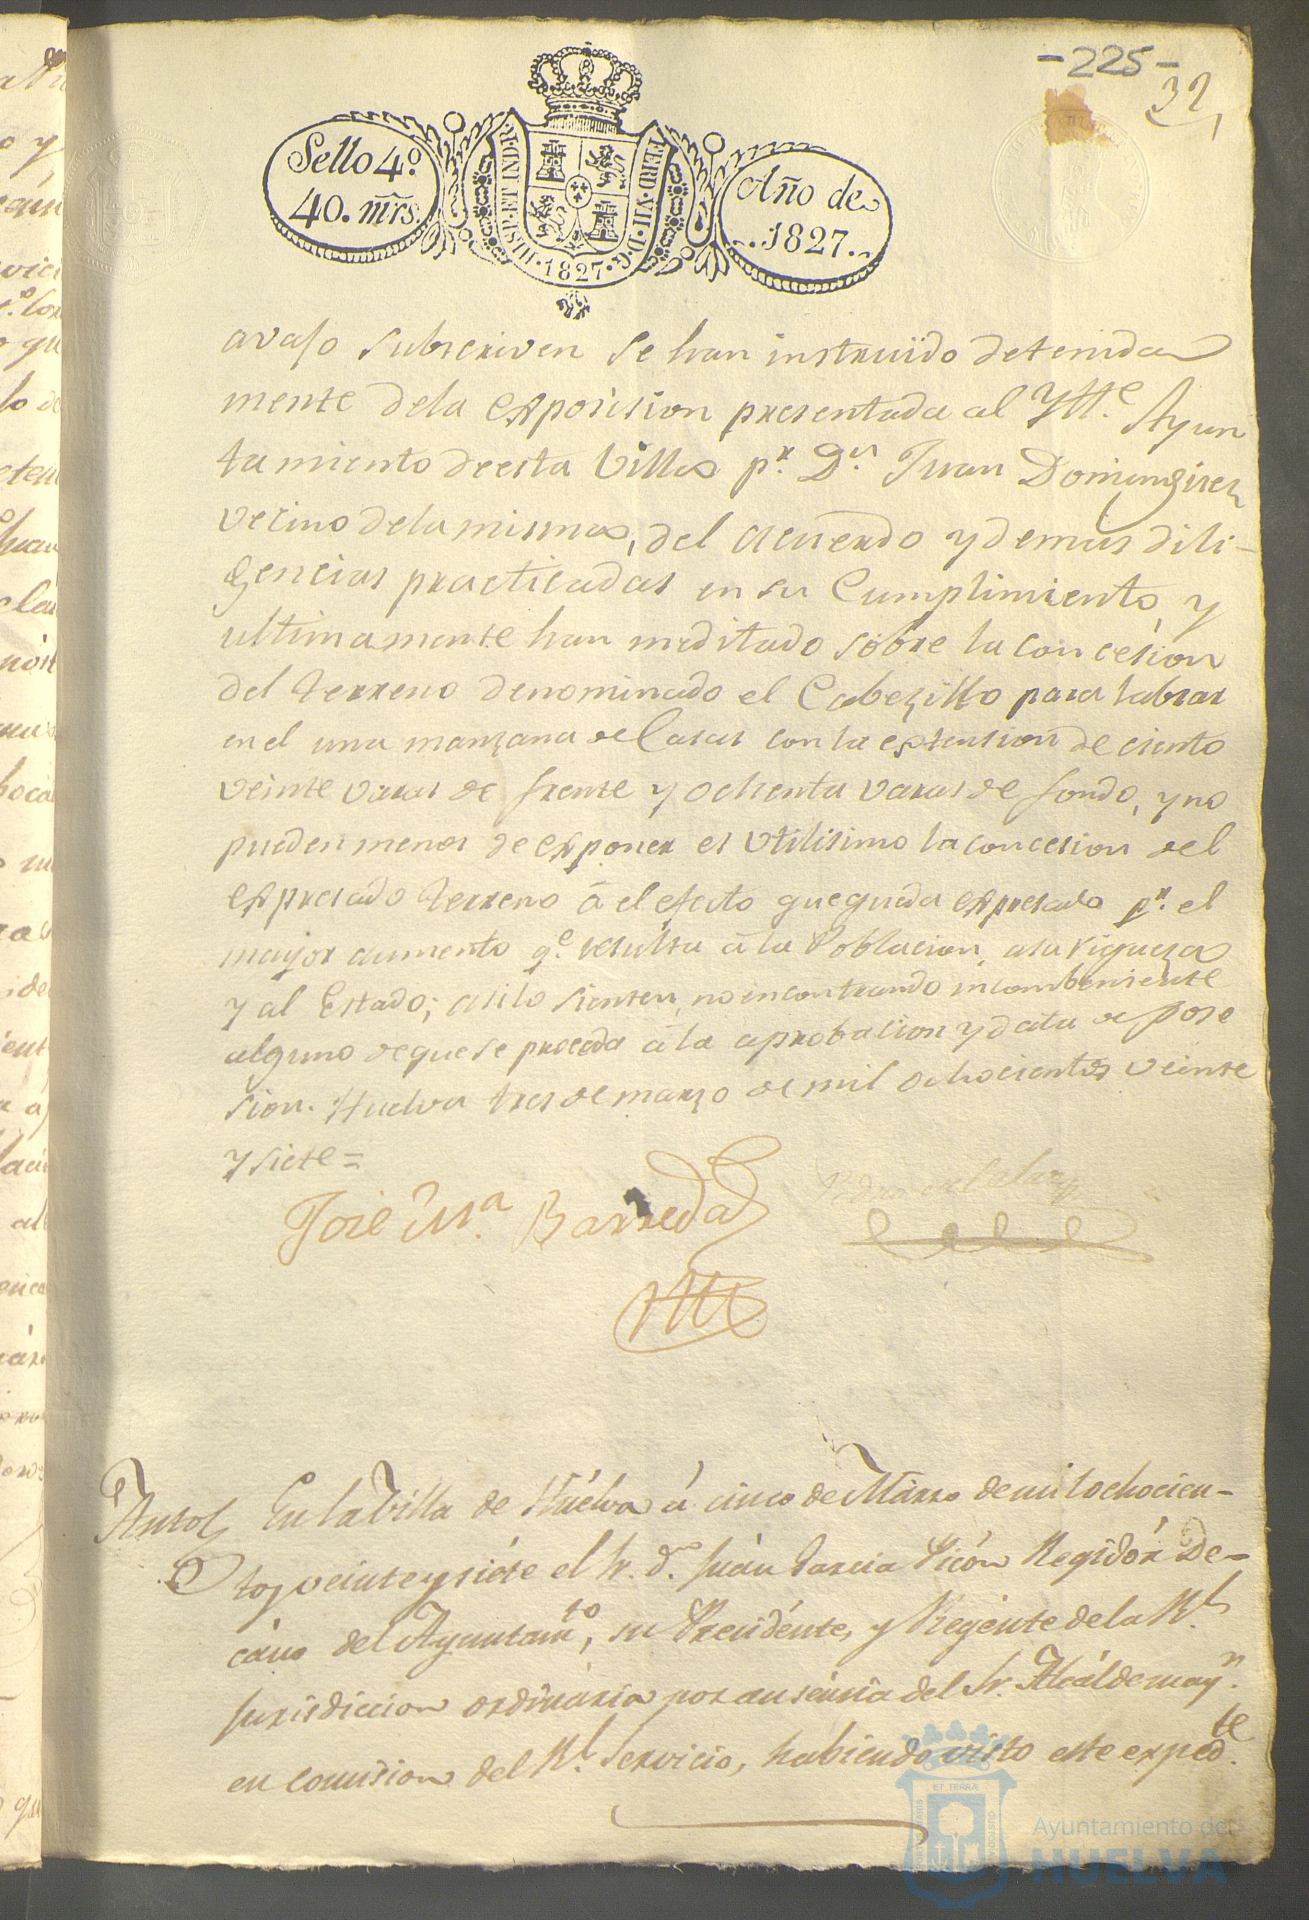 -225-
32
Sello 4º
40. mrs.
HISP. ET IND. R.
FERD. VII. D. G.
1827
Año de
1827
avajo subscriven se han instruido detenida
mente dela exposision presentada al Ylte. Ayun
tamiento de esta Villa pr. Dn. Juan Dominguez
vecino dela misma, del acuerdo y demas dili-
gencias practicadas en su Cumplimiento, y
ultimamente han meditado sobre la concesion
del terreno denominado el Cabezillo para labrar
en el una manzana de Casas con la extension de ciento
veinte varas de frente y ochenta varas de fondo, y no
pueden menos de exponer es utilisimo la concesion del
expresado terreno á el efecto que queda expresado pr. el
mayor aumento qe. resulta á la Poblacion, a la riqueza
y al Estado; asi lo sienten, no encontrando incombeniente
alguno de que se proceda á la aprobacion y data de pose
sion. Huelva tres de marzo de mil ochocientos veinte
y siete=
José Ma. Barreda
Auto
En la Villa de Huelva á cinco de Marzo de mil ochocien-
tos veinte y siete el Sr. dn. Juan Garcia Picón Regidór De-
cáno del Ayuntamto., su Presidente, y Regénte de la Rl.
jurisdiccion ordinária por ausencia del Sr. Alcálde mayr.
en comision del Rl. Servicio, habiendo visto este expedte.
ET TERRA
Ayuntamiento de
HUELVA